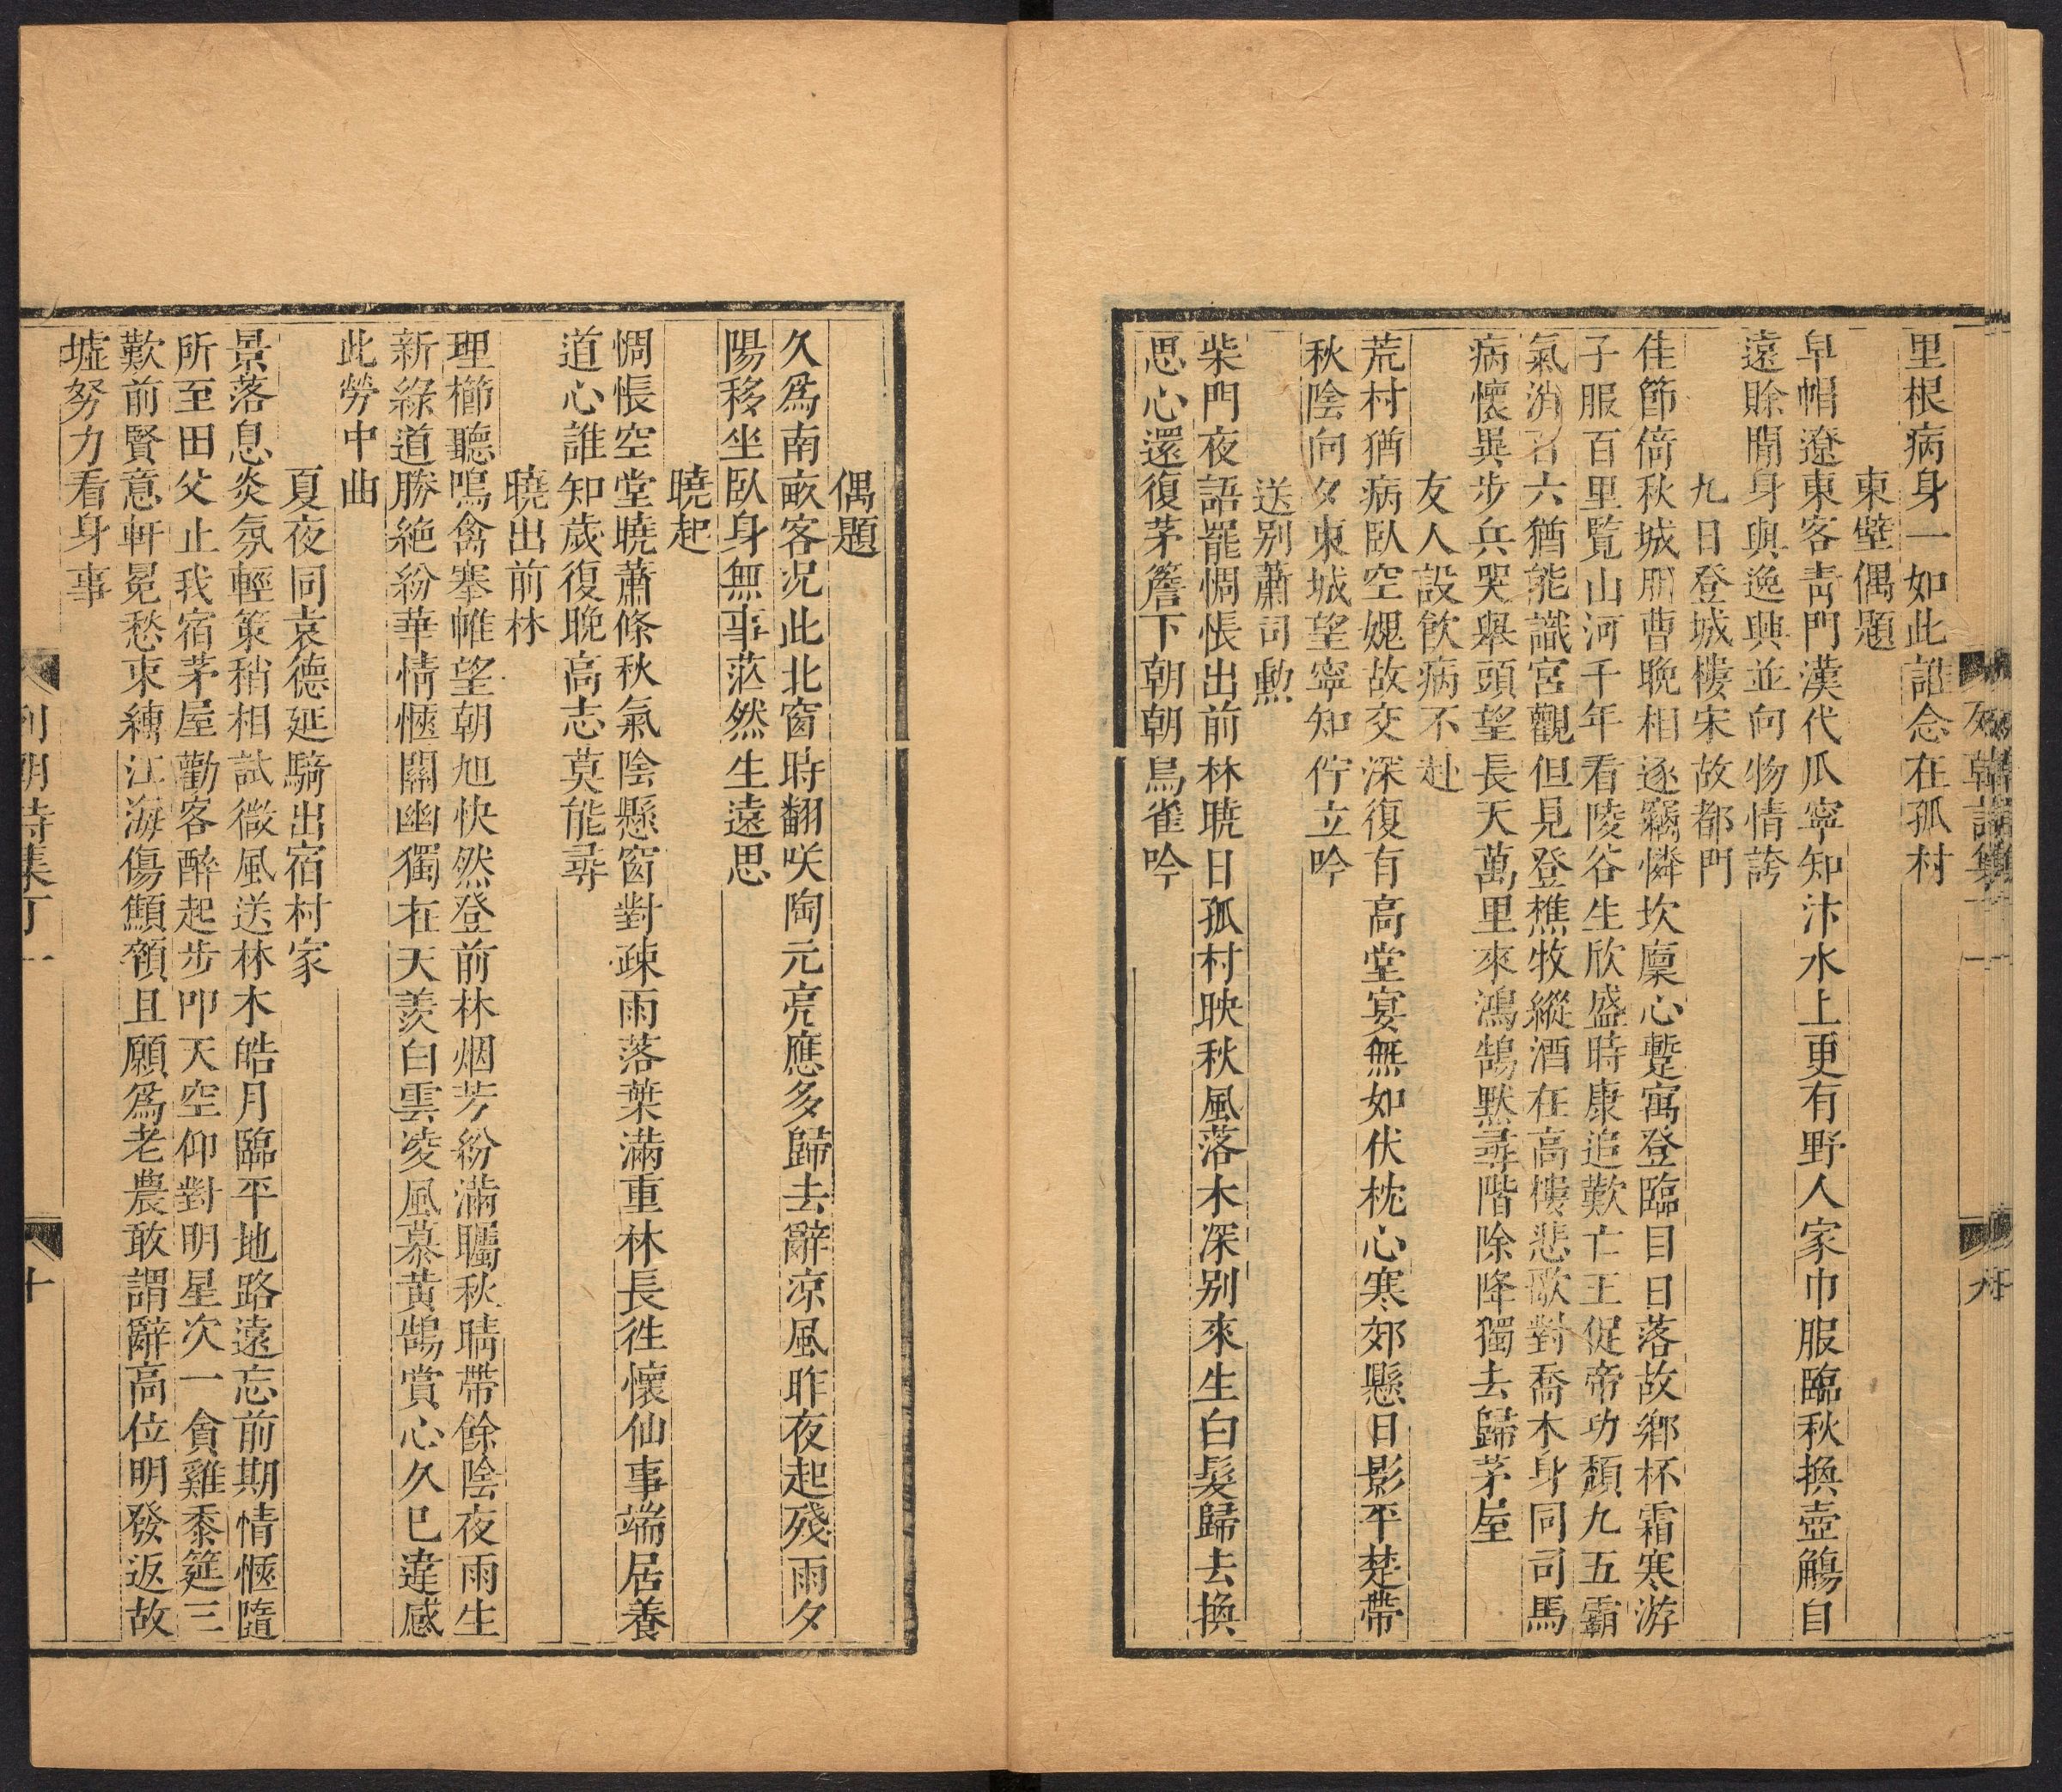 列朝詩集丁一
九
里根病身一如此誰念在孤村
東壁偶題
皁帽遼東客靑門漢代瓜寧知汴水上更有野人家巾服臨秋換壺觴自
遠賖閒身與逸興並向物情誇
九日登城樓宋故都門
佳節倚秋城朋曹晚相逐竊憐坎廩心蹔寓登臨目日落故鄉杯霜寒游
子服百里覧山河千年看陵谷生欣盛時康追歎亡王促帝功頹九五霸
氣消名六猶能識宮觀但見登樵牧縱酒在高樓悲歌對喬木身同司馬
病懷異步兵哭舉頭望長天萬里來鴻鵠默尋階除降獨去歸茅屋
友人設飲病不赴
荒村猶病臥空媿故交深復有高堂宴無如伏枕心寒郊懸日影平楚帶
秋陰向夕東城望寧知佇立吟
送别蕭司勲
柴門夜語罷惆悵出前林曉日孤村映秋風落木深别來生白髮歸去換
思心還復茅簷下朝朝鳥雀吟
偶題
久爲南畝客況此北窗時翻咲陶元亮應多歸去辭凉風昨夜起殘雨夕
陽移坐臥身無事茫然生遠思
曉起
惆悵空堂曉蕭條秋氣陰懸窗對疎雨落葉滿重林長徃懷仙事端居養
道心誰知歲復晚高志莫能尋
曉出前林
理櫛聽鳴禽搴帷望朝旭快然登前林烟芳紛滿矚秋晴帶餘陰夜雨生
新綠道勝絶紛華情愜關幽獨在天羨白雲凌風慕黃鵠賞心久巳違感
此勞中曲
夏夜同袁德延騎出宿村家
景落息炎氛輕策稍相試微風送林木皓月臨平地路遠忘前期情愜隨
所至田父止我宿茅屋勸客醉起步叩天空仰對明星次一食雞黍筵三
歎前賢意軒冕愁束縳江海傷顦顇且願爲老農敢謂辭高位明發返故
墟努力看身事
列朝詩集丁一
十